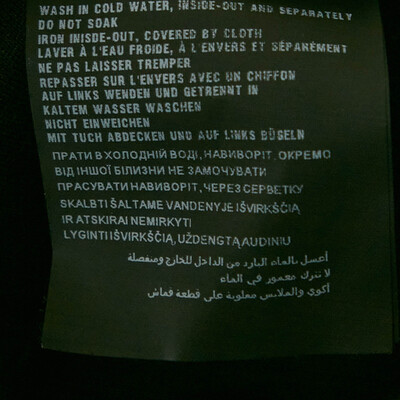 WASH IN COLD WATER, INSIDE-OUT AND SEPARATELY
DO NOT SOAK
IRON INISDE-OUT, COVERED BY CLOTH
LAVER À L'EAU FROIDE, À L'ENVERS ET SÉPARÉMENT
NE PAS LAISSER TREMPER
REPASSER SUR L'ENVERS AVEC UN CHIFFON
AUF LINKS WENDEN UND GETRENNT IN
KALTEM WASSER WASCHEN
NICHT EINWEICHEN
MIT TUCH ABDECKEN UND AUF LINKS BÜGELN
ПРАТИ В ХОЛОДНІЙ ВОДІ, НАВИВОРІТ, ОКРЕМО
ВІД ІНШОЇ БІЛИЗНИ НЕ ЗАМОЧУВАТИ
ПРАСУВАТИ НАВИВОРІТ, ЧЕРЕЗ СЕРВЕТКУ
SKALBTI ŠALTAME VANDENYJE IŠVIRKŠČIĄ
IR ATSKIRAI NEMIRKYTI
LYGINTI IŠVIRKŠČIĄ, UŽDENGTĄ AUDINIU
أغسل بالماء البارد من الداخل للخارج ومنفصلة
لا تترك مغمور في الماء
أكوي والملابس مغلوبة على قطعة قماش